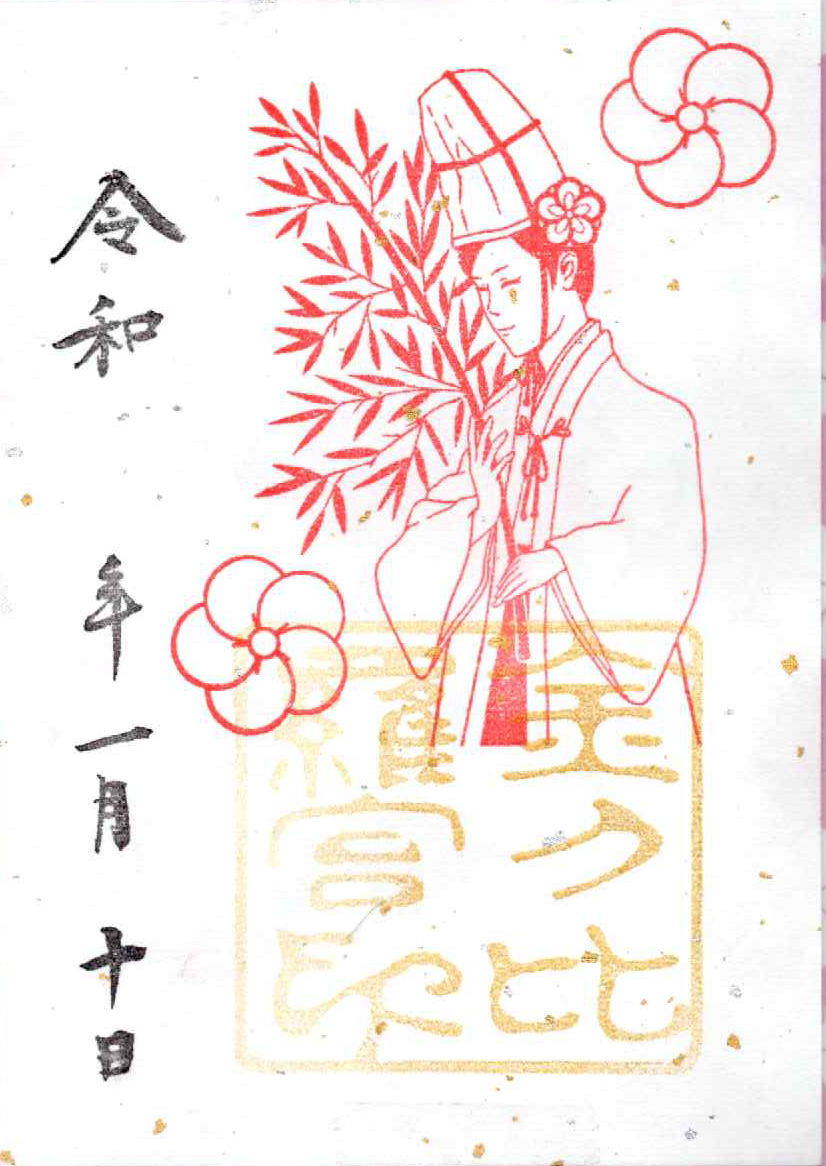 金刀比
羅宮印
令和 年一月十日